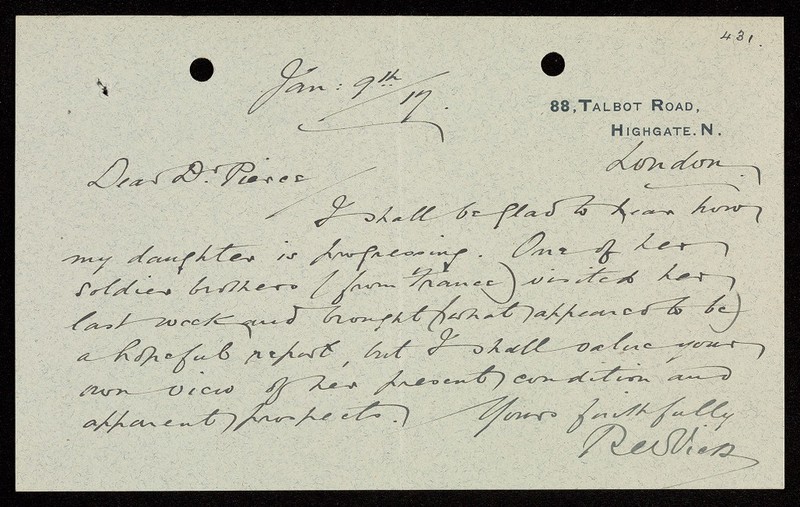 431.
Jan: 9th/17.
88, TALBOT ROAD,
HIGHGATE. N.
London.
Dear Dr Pierce
I shall be glad to hear how
my daughter is progressing. One of her
soldier brothers (from France) visited her
last week and brought (what appeared to be)
a hopeful report, but I shall value your
own view of her present condition and
apparent prospects. Yours faithfully